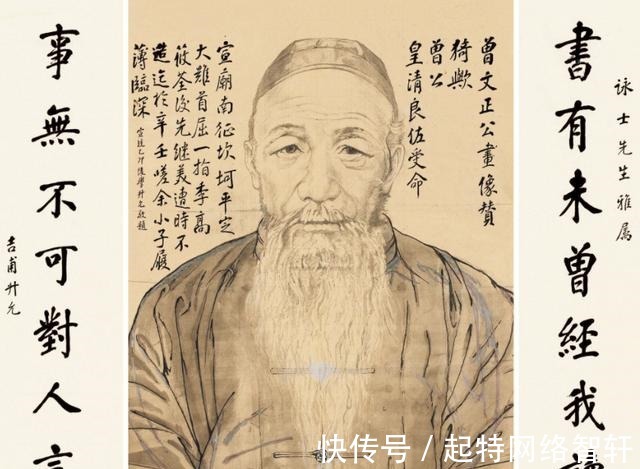 書有未曾經我讀
詠士先生雅屬
曾文正公畫像贊
猗歟
曾公
皇清良佐受命
宣廟南征坎坷平定
大難首屈一指李高
筱荃後先繼美遭時不
造迄於辛壬嗟余小子履
薄臨深
宣統乙卯後學升允敬題
事無不可對人言
吉甫升允
快传号/起特网络智轩